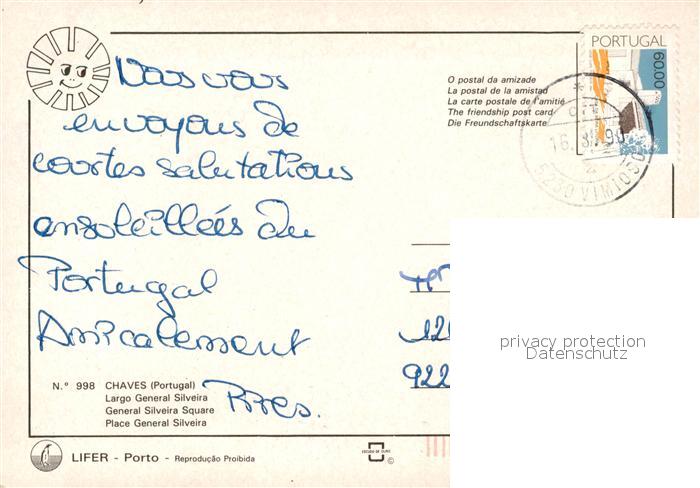 Nous vous
envoyons de
courtes salutations
ensoleillées du
Portugal
Amicalement
Pires.
O postal da amizade
La postal de la amistad
La carte postale de l'amitié
The friendship post card
Die Freundschaftskarte
PORTUGAL
60.00
5230 VIMIOSO
922
privacy protection
Datenschutz
N.º 998 CHAVES (Portugal)
Largo General Silveira
General Silveira Square
Place General Silveira
LIFER - Porto - Reprodução Proibida
©